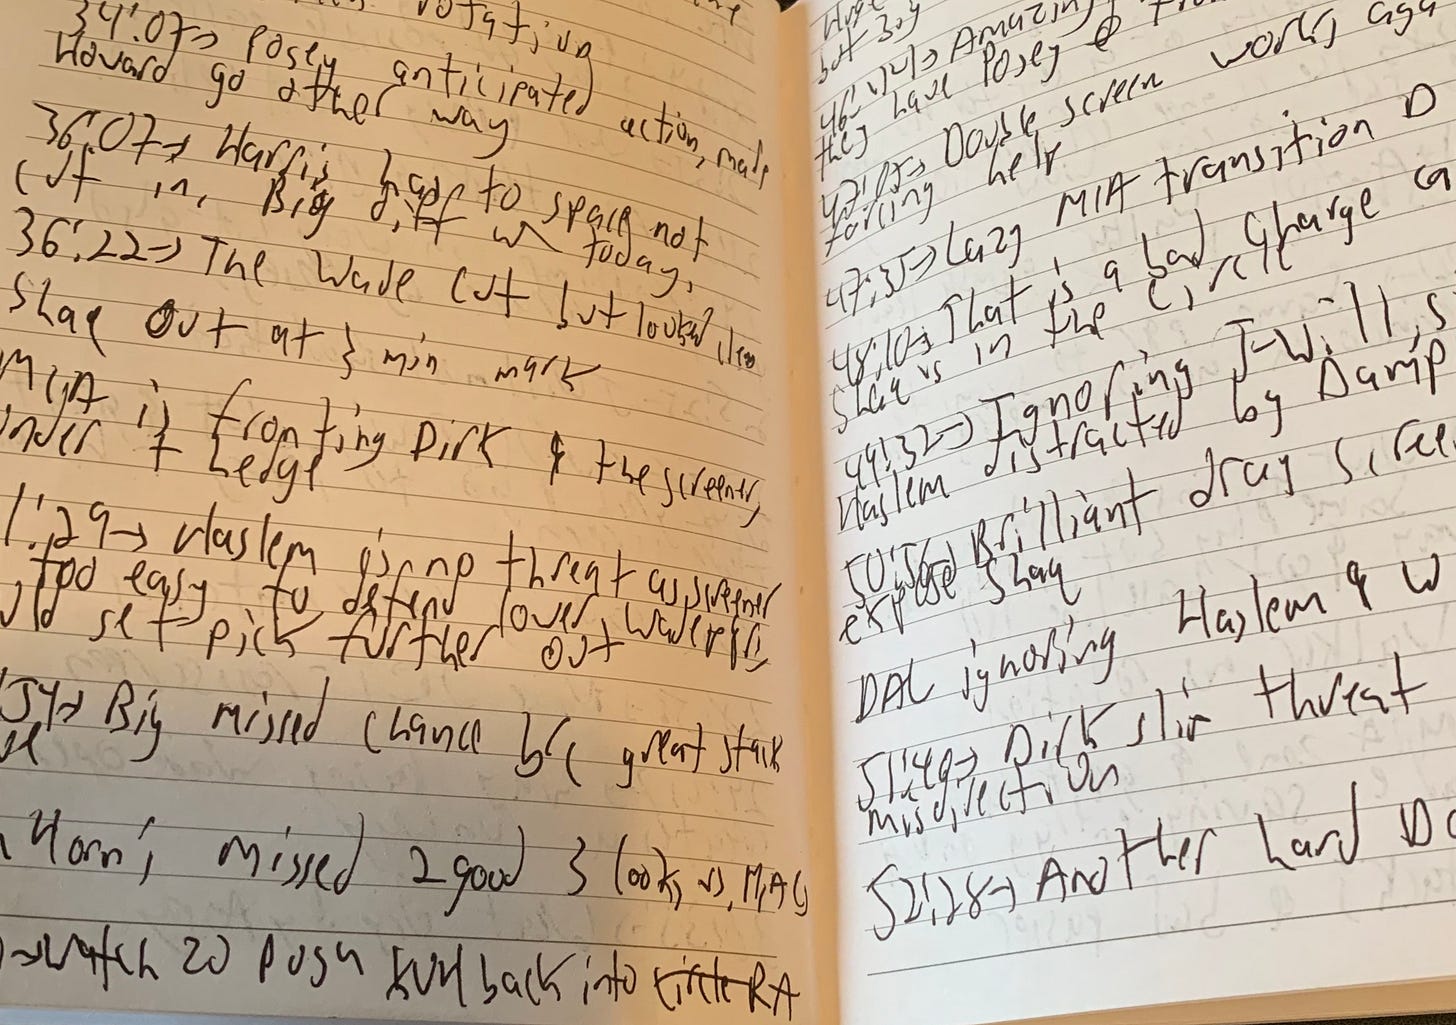 rotation
34:07→ Posey anticipated action, made
Howard go other way
36:07→ Harris has to space not
cut in. Big diff w/ today.
36:22→ The Wade cut but looked
Shaq out at 3 min mark
MIA is fronting Dirk & the screener,
under + hedge
1:29→ Haslem is no threat as screener
too easy to defend lower Wade
set pick further out
54→ Big missed chance b/c great
missed 2 good 3 looks vs. MIA
→Watch 20 push back into RA
but
46:42→ Amazing
they have Posey @
47:05→ Double screen works aga
forcing help
47:35→ Lazy MIA transition D
48:10→ That is a bad charge ca
Shaq is in the circle
49:32→ Ignoring J-Will, s
Haslem distracted by Damp
50:56→ Brilliant drag scree
expose Shaq
DAL ignoring Haslem & W
51:49→ Dirk slip threat
misdirection
52:28→ Another hard D